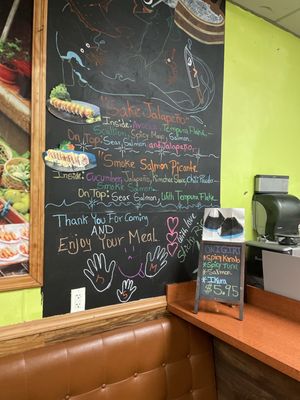 "Sake Jalapeño"
Inside: Avocado, Tempura Flake
Scallion, Spicy Mayo, Salmon,
On Top: Sear Salmon, and Jalapeño,
"Smoke Salmon Picante
Inside:
Cucumber, Jalapeño, Kimchee Sauce, Chili Powder
Smoke Salmon.
On Top: Sear Salmon, With Tempura Flake
Thank You For Coming
AND
Enjoy Your Meal.
ONIGIRI
Spicy Kani
Spicy Tuna
Salmon
Ikura
$5.95